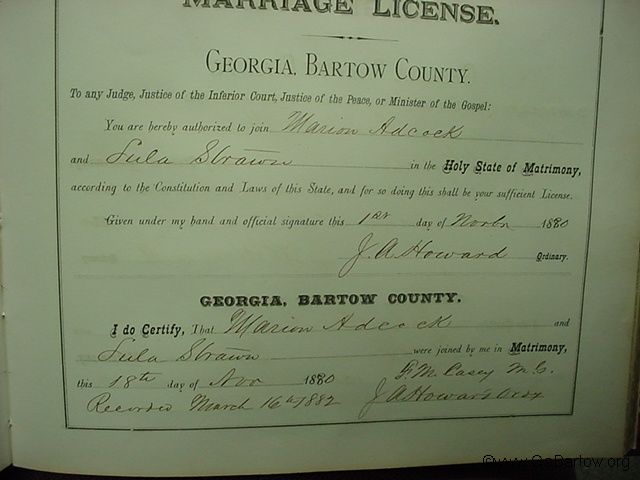 MARRIAGE LICENSE.
GEORGIA, BARTOW COUNTY.
To any Judge, Justice of the Inferior Court, Justice of the Peace, or Minister of the Gospel:
You are hereby authorized to join Marion Adcock
and Lula Strawn in the Holy State of Matrimony,
according to the Constitution and Laws of this State, and for so doing this shall be your sufficient License.
Given under my hand and official signature this 1st day of Novbr 1880
J. A. Howard Ordinary.
GEORGIA, BARTOW COUNTY.
I do Certify, That Marion Adcock and
Lula Strawn were joined by me in Matrimony,
this 18th day of Nov 1880 M. Casey M. G.
Recorded March 16th 1882 J A Howard Ordy
©www.GaBartow.org